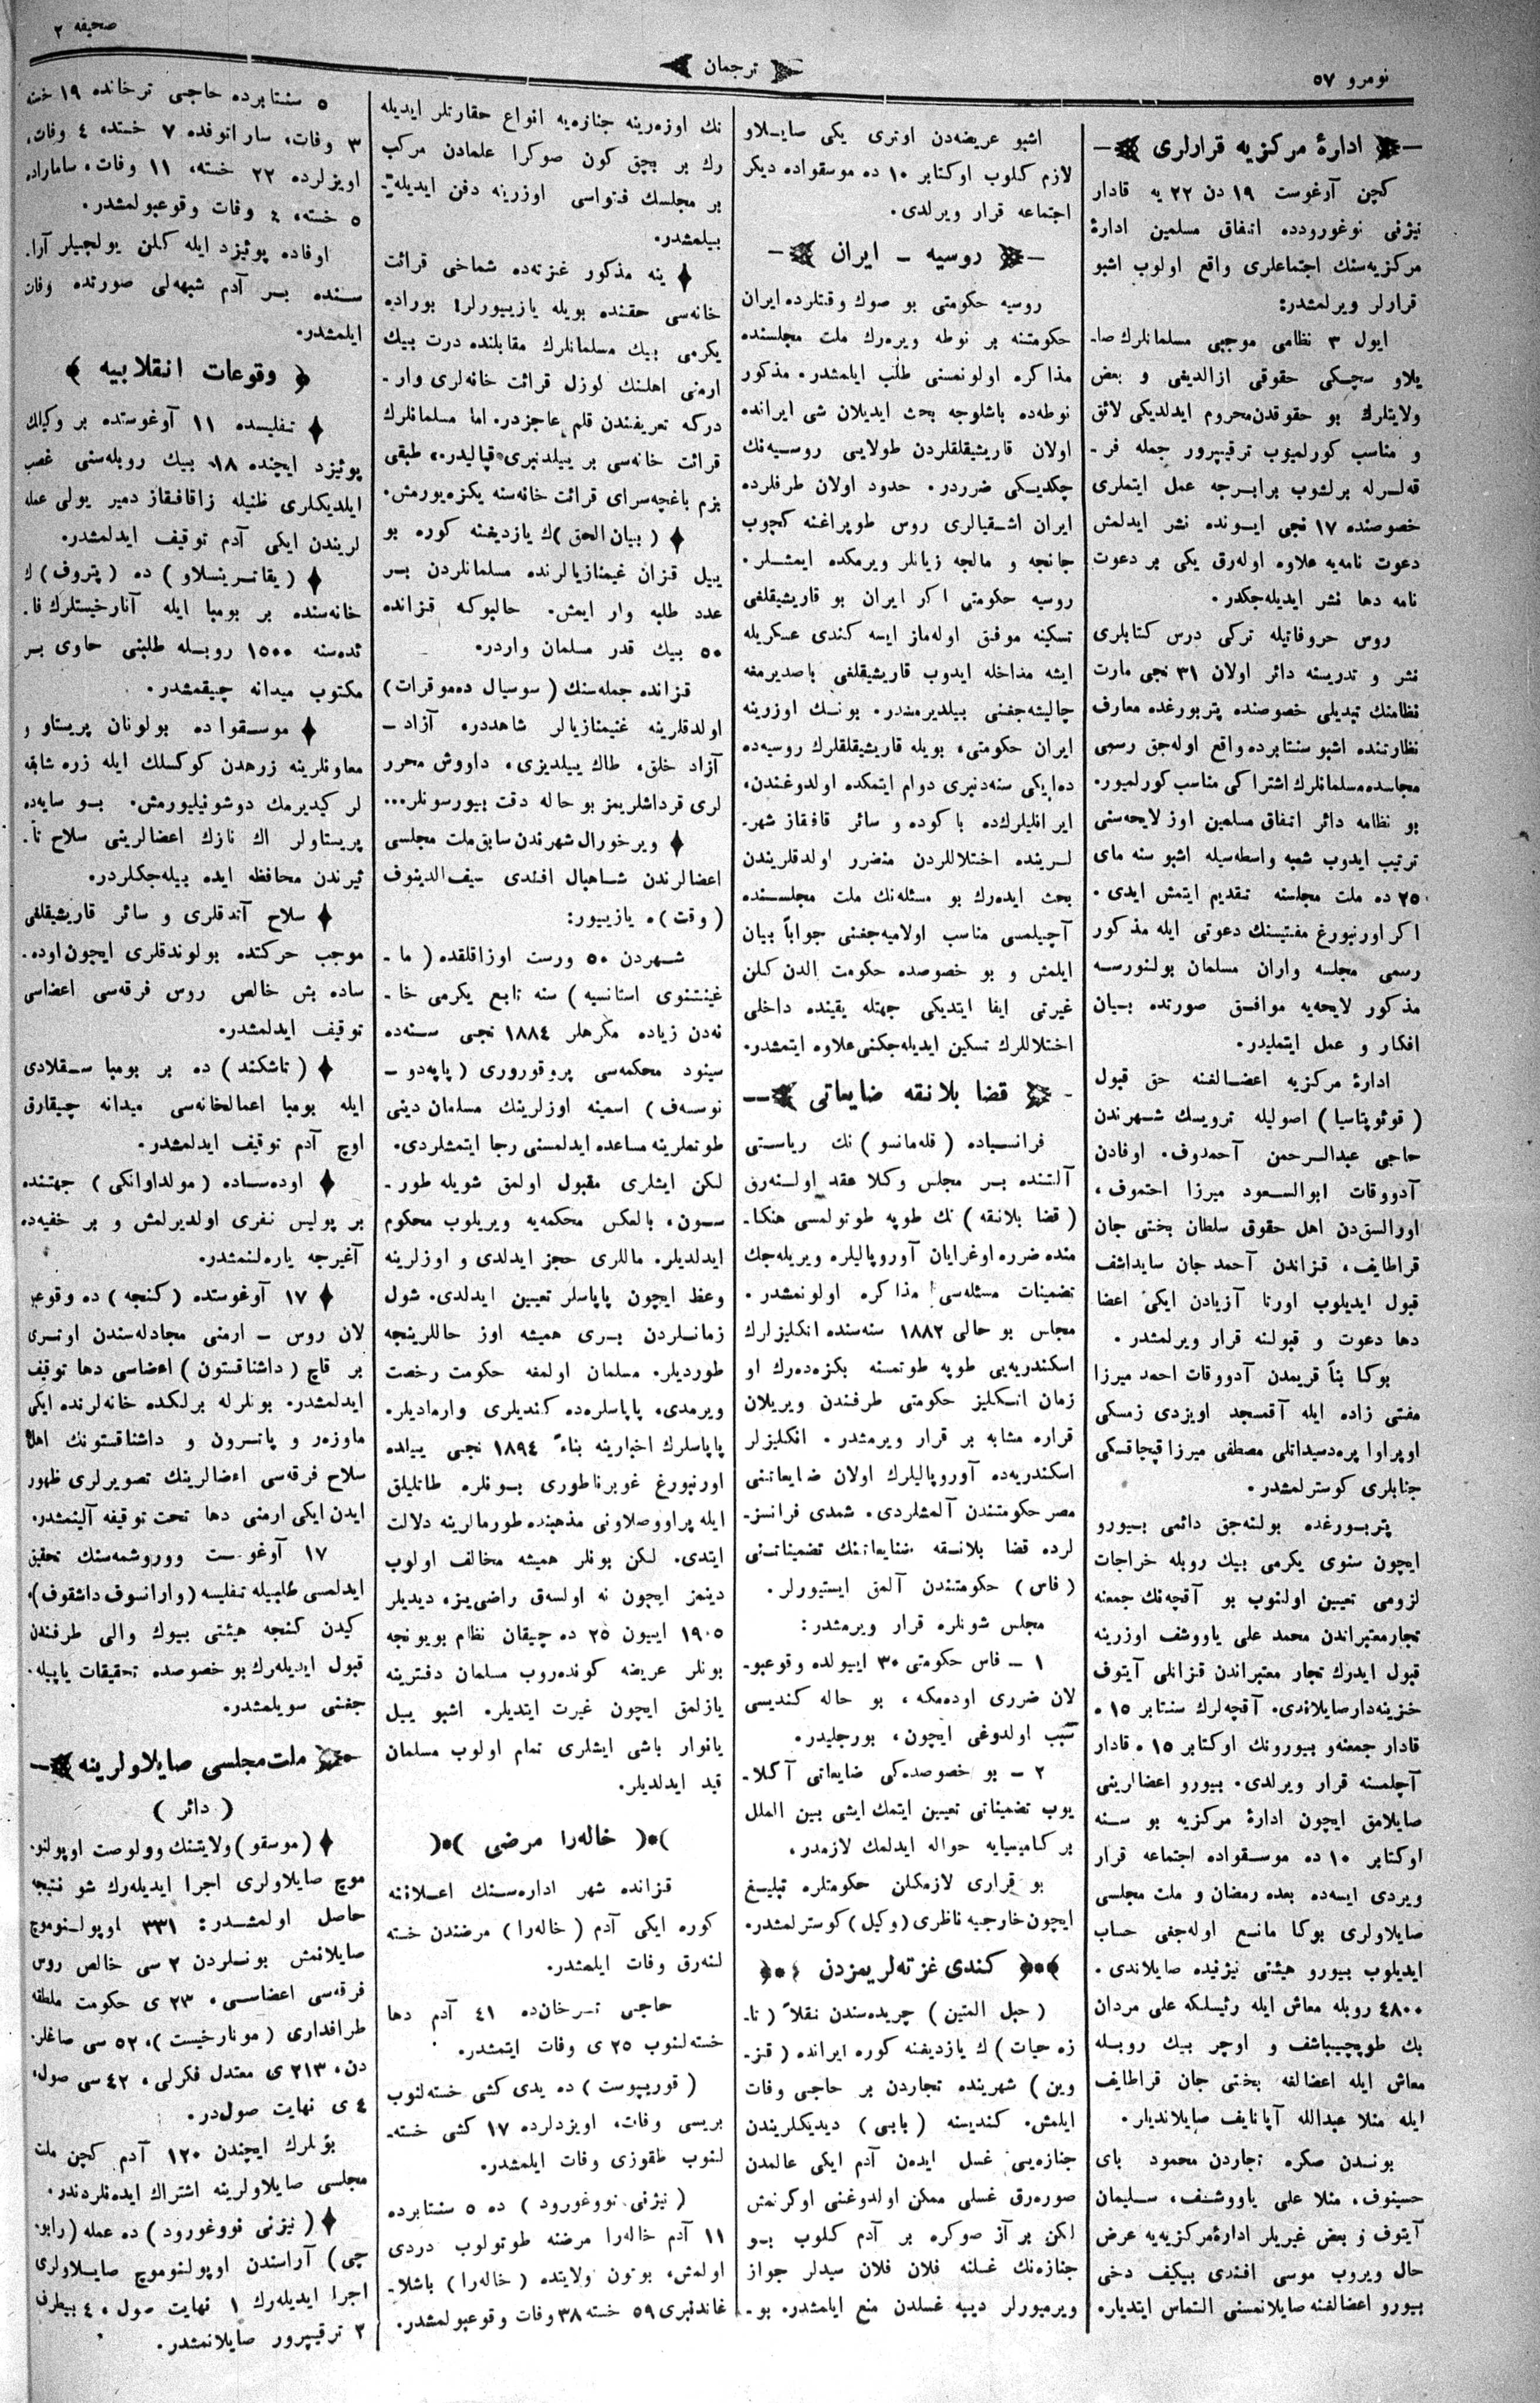 نومرو ٥٧
ترجمان
صحیفه ٢
ادارهٔ مركزیه قرارلری
كچن آوغوست ١٩ دن ٢٢ یه قادار
نیژنی نوغوروددە اتفاق مسلمین ادارهٔ
مركزیەسنك اجتماعلری واقع اولوب اشبو
قرارلر ویرلمشدر:
ایول ٣ نظامی موجبی مسلمانلرك صا-
یلاو سچكی حقوقی ازالدیغی و بعض
ولایتلرك بو حقوقدن محروم ایدلدیكی لائق
و مناسب كورلمیوب ترقیپرور جمله فر-
قەلرله برلشوب برابرجه عمل ایتملری
خصوصنده ١٧ نجی ایونده نشر ایدلمش
دعوت نامەیه علاوه اولەرق یكی بر دعوت
نامه دها نشر ایدیلەجكدر.
روس حروفاتیله تركی درس كتابلری
نشر و تدریسنه دائر اولان ٣١ نجی مارت
نظامنك تبدیلی خصوصنده پتربورغده معارف
نظارتنده اشبو سنتابرده واقع اولەجق رسمی
مجلسده مسلمانلرك اشتراكی مناسب كورلمیور.
بو نظامه دائر اتفاق مسلمین اوز لایحەسنی
ترتیب ایدوب شعبه واسطەسیله اشبو سنه مای
٢٥ ده ملت مجلسنه تقدیم ایتمش ایدی.
اكر اورنبورغ مفتیسنك دعوتی ایله مذكور
رسمی مجلسه واران مسلمان بولنورسه
مذكور لایحەیه موافق صورتده بیان
افكار و عمل ایتملیدر.
ادارهٔ مركزیه اعضالغنه حق قبول
(قوئوپتاسیا) اصولیله ترویسك شهرندن
حاجی عبدالرحمن آحمدوف، اوفادن
آدووقات ابوالسعود میرزا احتموف،
اورالسق دن اهل حقوق سلطان بختی جان
قراطایف، قزاندن آحمد جان سایداشف
قبول ایدیلوب اورتا آزیادن ایكی اعضا
دها دعوت و قبولنه قرار ویرلمشدر.
بوكا بناً قریمدن آدووقات احمد میرزا
مفتی زاده ایله آقمسجد اویزدی زمسكی
اوپراوا پرەدسیداتلی مصطفی میرزا قیجاقسكی
جنابلری كوسترلمشدر.
پتربورغده بولنەجق دائمی بیورو
ایچون سنوی یكرمی بیك روبله خراجات
لزومی تعیین اولنوب بو آقچەنك جمعنه
تجار معتبراندن محمد علی یاووشف اوزرینه
قبول ایدرك تجار معتبراندن قزانلی آیتوف
خزینەدار صایلاندی. آقچەلرك سنتابر ١٥ ه
قادار جمعنه و بیورونك اوكتابر ١٥ ه قادار
آچلمسنه قرار ویرلدی. بیورو اعضالرینی
صایلامق ایچون ادارهٔ مركزیه بو سنه
اوكتابر ١٠ ده موسقواده اجتماعه قرار
ویردی ایسەده بعده رمضان و ملت مجلسی
صایلاولری بوكا مانع اولەجغی حساب
ایدیلوب بیورو هیئتی نیژنیده صایلاندی.
٤٨٠٠ روبله معاش ایله رئیسلكه علی مردان
بك طوپچیباشف و اوچر بیك روبله
معاش ایله اعضالغه بختی جان قراطایف
ایله منلا عبدالله آپانایف صایلاندیلر.
بوندن صكره تجاردن محمود بای
حسینوف، منلا علی یاووشف، سلیمان
آیتوف و بعض غیریلر ادارهٔ مركزیەیه عرض
حال ویروب موسی افندی بیكیف دخی
بیورو اعضالغنه صایلانمسنی التماس ایتدیلر.
اشبو عریضەدن اوتری یكی صایلاو
لازم كلوب اوكتابر ١٠ ده موسقواده دیكر
اجتماعه قرار ویرلدی.
روسیه - ایران
روسیه حكومتی بو صوك وقتلرده ایران
حكومتنه بر نوطه ویرەرك ملت مجلسنده
مذاكره اولونمسنی طلب ایلمشدر. مذكور
نوطەده باشلوجه بحث ایدیلان شی ایرانده
اولان قاریشیقلقلردن طولایی روسیەنك
چكدیكی ضرردر. حدود اولان طرفلرده
ایران اشقیالری روس طوپراغنه كچوب
جانجه و مالجه زیانلر ویرمكده ایمشلر.
روسیه حكومتی اكر ایران بو قاریشیقلغی
تسكینه موفق اولەماز ایسه كندی عسكریله
ایشه مداخله ایدوب قاریشیقلغی باصدیرمغه
چالیشەجغنی بیلدیرمشدر. بونك اوزرینه
ایران حكومتی، بویله قاریشیقلقلرك روسیەده
ده ایكی سنەدنبری دوام ایتمكده اولدوغندن،
ایرانلیلرك ده باكوده و سائر قافقاز شهر-
لرینده اختلاللردن متضرر اولدقلریندن
بحث ایدەرك بو مسئلەنك ملت مجلسنده
آچیلمسی مناسب اولامیەجغنی جواباً بیان
ایلمش و بو خصوصده حكومت الدن كلن
غیرتی ایفا ایتدیكی جهتله یقینده داخلی
اختلاللرك تسكین ایدیلەجكنی علاوه ایتمشدر.
قضا بلانقه ضایعاتی
فرانساده (قلەمانسو) نك ریاستی
آلتنده بر مجلس وكلا عقد اولنەرق
(قضا بلانقه) نك طوپه طوتولمسی هنكا-
منده ضرره اوغرایان آوروپالیلره ویریلەجك
تضمینات مسئلەسی مذاكره اولونمشدر.
مجلس بو حالی ١٨٨٢ سنەسنده انكلیزلرك
اسكندریەیی طوپه طوتمسنه بكزەدەرك او
زمان انكلیز حكومتی طرفندن ویریلان
قراره مشابه بر قرار ویرمشدر. انكلیزلر
اسكندریەده آوروپالیلرك اولان ضایعاتنی
مصر حكومتندن آلمشلردی. شمدی فرانسز-
لرده قضا بلانقه ضایعاتنك تضمیناتنی
(فاس) حكومتندن آلمق ایستیورلر.
مجلس شونلره قرار ویرمشدر:
١ - فاس حكومتی ٣٠ اییولده وقوعبو-
لان ضرری اودەمكه، بو حاله كندیسی
سبب اولدوغی ایچون، بورجلیدر.
٢ - بو خصوصدەكی ضایعاتی آكلا-
یوب تضمیناتی تعیین ایتمك ایشی بین الملل
بر كامیسیایه حواله ایدلمك لازمدر.
بو قراری لازمكلن حكومتلره تبلیغ
ایچون خارجیه ناظری (وكیل) كوسترلمشدر.
كندی غزتەلریمزدن
(حبل المتین) جریدەسندن نقلاً (تا-
زه حیات) ك یازدیغنه كوره ایرانده (قز-
وین) شهرینده تجاردن بر حاجی وفات
ایلمش. كندیسنه (بابی) دیدیكلریندن
جنازەیی غسل ایدەن آدم ایكی عالمدن
صورەرق غسلی ممكن اولدوغنی اوكرنمش
لكن بر آز صوكره بر آدم كلوب بو
جنازەنك غسلنه فلان فلان سیدلر جواز
ویرمیورلر دییه غسلدن منع ایلمشدر. بو-
نك اوزەرینه جنازەیه انواع حقارتلر ایدیله
رك بر بچق كون صوكرا علمادن مركب
بر مجلسك فتواسی اوزرینه دفن ایدیلە-
بیلمشدر.
ینه مذكور غزتەده شماخی قرائت
خانەسی حقنده بویله یازییورلر: بوراده
یكرمی بیك مسلمانلرك مقابلنده درت بیك
ارمنی اهلنك كوزل قرائت خانەلری وار-
دركه تعریفندن قلم عاجزدر. اما مسلمانلرك
قرائت خانەسی بر ییلدنبری قپالیدر، طبقی
بزم باغچەسرای قرائت خانەسنه بكزەیورمش.
(بیان الحق) ك یازدیغنه كوره بو
ییل قزان غیمنازیالرنده مسلمانلردن بر
عدد طلبه وار ایمش. حالبوكه قزانده
٥٠ بیك قدر مسلمان واردر.
قزانده جملەسنك (سوسیال دەموقرات)
اولدقلرینه غیمنازیالر شاهددر. آزاد-
آزاد خلق، طاك ییلدیزی، داووش محرر
لری قرداشلریمز بو حاله دقت بیورسونلر...
ویرخورال شهرندن سابق ملت مجلسی
اعضالرندن شاهبال افندی سیف الدینوف
(وقت) ه یازییور:
شهردن ٥٠ ورست اوزاقلقده (ما-
غینتنوی استانسیه) سنه تابع یكرمی خا-
نەدن زیاده مكرهلر ١٨٨٤ نجی سنەده
سینود محكمەسی پروقوروری (پاپەدو-
نوسەف) اسمینه اوزلرینك مسلمان دینی
طوتملرینه مساعده ایدلمسنی رجا ایتمشلردی.
لكن ایشلری مقبول اولمق شویله طور-
سون، بالعكس محكمەیه ویریلوب محكوم
ایدلدیلر. ماللری حجز ایدلدی و اوزلرینه
وعظ ایچون پاپاسلر تعیین ایدلدی. شول
زمانلردن بری همیشه اوز حاللرینجه
طوردیلر. مسلمان اولمغه حكومت رخصت
ویرمدی، پاپاسلرەده كندیلری وارمادیلر.
پاپاسلرك اخبارینه بناءً ١٨٩٤ نجی ییلده
اورنبورغ غوبرناطوری بونلره طاتلیلق
ایله پراووصلاونی مذهبنده طورمالرینه دلالت
ایتدی. لكن بونلر همیشه مخالف اولوب
دینمز ایچون نه اولسەق راضی یز، دیدیلر
١٩٠٥ اییون ٢٥ ده چیقان نظام بویونجه
بونلر عریضه كوندەروب مسلمان دفترینه
یازلمق ایچون غیرت ایتدیلر. اشبو ییل
یانوار باشی ایشلری تمام اولوب مسلمان
قید ایدلدیلر.
خالەرا مرضی
قزانده شهر ادارەسنك اعلاننه
كوره ایكی آدم (خالەرا) مرضندن خسته
لنەرق وفات ایلمشدر.
حاجی ترخان ده ٤١ آدم دها
خستەلنوب ٢٥ ی وفات ایتمشدر.
(قوریپوست) ده یدی كشی خستەلنوب
بریسی وفات، اویزدلرده ١٧ كشی خستە-
لنوب طقوزی وفات ایلمشدر.
(نیژنی نووغورود) ده ٥ سنتابرده
١١ آدم خالەرا مرضنه طوتولوب دردی
اولمش، بوتون ولایتده (خالەرا) باشلا-
غاندنبری ٥٩ خسته ٣٨ وفات وقوعبولمشدر.
٥ سنتابرده حاجی ترخانده ١٩ خسته
٣ وفات، ساراتوفده ٧ خسته، ٤ وفات،
اویزلرده ٢٢ خسته، ١١ وفات، ساماراده
٥ خسته، ٤ وفات وقوعبولمشدر.
اوفاده پوئیزد ایله كلن یولچیلر آرا-
سنده بر آدم شبهەلی صورتده وفات
ایلمشدر.
وقوعات انقلابیه
تفلیسده ١١ آوغوستده بر وكیلك
پوئیزد ایچنده ١٨ بیك روبلەسنی غصب
ایلدیكلری ظنیله زاقافقاز دمیر یولی عمله
لریندن ایكی آدم توقیف ایدلمشدر.
(یقاترینسلاو) ده (پتروف) ك
خانەسنده بر بومبا ایله آنارخیستلرك فا-
ئدەسنه ١٥٠٠ روبله طلبنی حاوی بر
مكتوب میدانه چیقمشدر.
موسقواده بولونان پریستاو و
معاونلرینه زرهدن كوكسلك ایله زره شابقه
لر كیدیرمك دوشونیلیورمش. بو سایەده
پریستاولر اك نازك اعضالرینی سلاح تأ-
ثیرندن محافظه ایده بیلەجكلردر.
سلاح آلدقلری و سائر قاریشیقلغی
موجب حركتده بولوندقلری ایچون اودە-
ساده بش خالص روس فرقەسی اعضاسی
توقیف ایدلمشدر.
(تاشكند) ده بر بومبا سقلادی
ایله بومبا اعمالخانەسی میدانه چیقارق
اوچ آدم توقیف ایدلمشدر.
اودەساده (مولداوانكی) جهتنده
بر پولیس نفری اولدیرلمش و بر خفیەده
آغیرجه یارەلنمشدر.
١٧ آوغوستده (كنجه) ده وقوعبو
لان روس - ارمنی مجادلەسندن اوتری
بر قاچ (داشناقستون) اعضاسی دها توقیف
ایدلمشدر. بونلرله برلكده خانەلرنده ایكی
ماوزەر و پاترون و داشناقستونك اهل
سلاح فرقەسی اعضالرینك تصویرلری ظهور
ایدن ایكی ارمنی دها تحت توقیفه آلینمشدر.
١٧ آوغوست ووروشمەسنك تحقیق
ایدلمسی طلبیله تفلیسه (وارانسوف داشقوف)ه
كیدن كنجه هیئتی بیوك والی طرفندن
قبول ایدیلەرك بو خصوصده تحقیقات یاپیله-
جغنی سویلمشدر.
ملت مجلسی صایلاولرینه
(دائر)
(موسقو) ولایتنك وولوصت اوپولنو-
موچ صایلاولری اجرا ایدیلەرك شو نتیجه
حاصل اولمشدر: ٣٣١ اوپولنوموچ
صایلانمش بونلردن ٢ سی خالص روس
فرقەسی اعضاسی، ٢٣ ی حكومت مطلقه
طرفداری (مونارخیست)، ٥٢ سی صاغلر-
دن، ٢١٣ ی معتدل فكرلی، ٤٢ سی صول،
٤ ی نهایت صول در.
بونلرك ایچندن ١٢٠ آدم كچن ملت
مجلسی صایلاولرینه اشتراك ایدەنلردندر.
(نیژنی نووغورود) ده عمله (رابو-
چی) آراسندن اوپولنوموچ صایلاولری
اجرا ایدیلەرك ١ نهایت صول، ٤ بیطرف
٢ ترقیپرور صایلانمشدر.